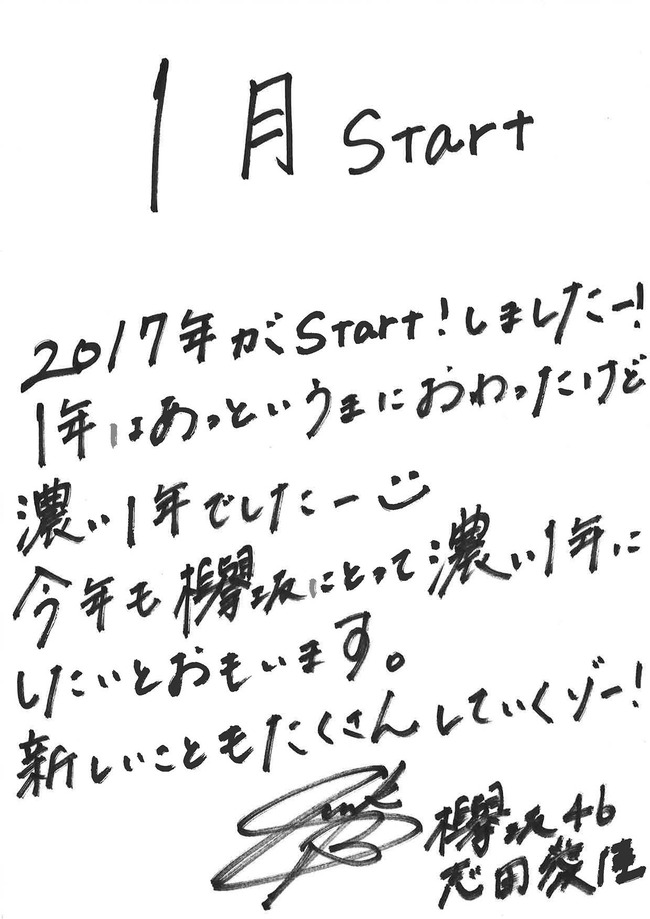 1月 Start
2017年がStart!しましたー!
1年はあっというまにおわったけど
濃い1年でしたー
今年も欅坂にとって濃い1年に
したいとおもいます。
新しいこともたくさんしていくゾー!
欅坂46
志田愛佳